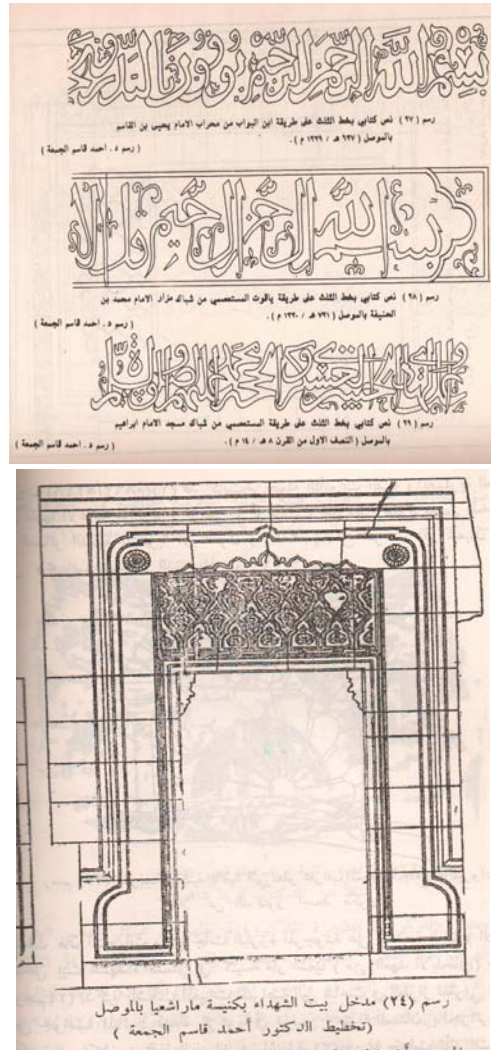 بسم الله الرحمن الرحيم
رسم ( ٢٧ ) نص كتابي بخط الثلث على طريقة ابن البواب من محراب الامام يحيى بن القاسم
بالموصل ( ٦٣٧ هـ / ١٢٣٩ م ) .
( رسم د . احمد قاسم الجمعة )
بسم الله الرحمن الرحيم
رسم ( ٢٨ ) نص كتابي بخط الثلث على طريقة ياقوت المستعصمي من شباك مزار الامام محمد بن
الحنيفة بالموصل ( ٧٣١ هـ / ١٣٣٠ م ) .
( رسم د . احمد قاسم الجمعة )
رسم ( ٢٩ ) نص كتابي بخط الثلث على طريقة المستعصمي من شباك مسجد الامام ابراهيم
بالموصل ( النصف الاول من القرن ٨ هـ / ١٤ م ) .
( رسم د . احمد قاسم الجمعة )
رسم (٢٤) مدخل بيت الشهداء بكنيسة مار اشعيا بالموصل
(تخطيط الدكتور أحمد قاسم الجمعة )